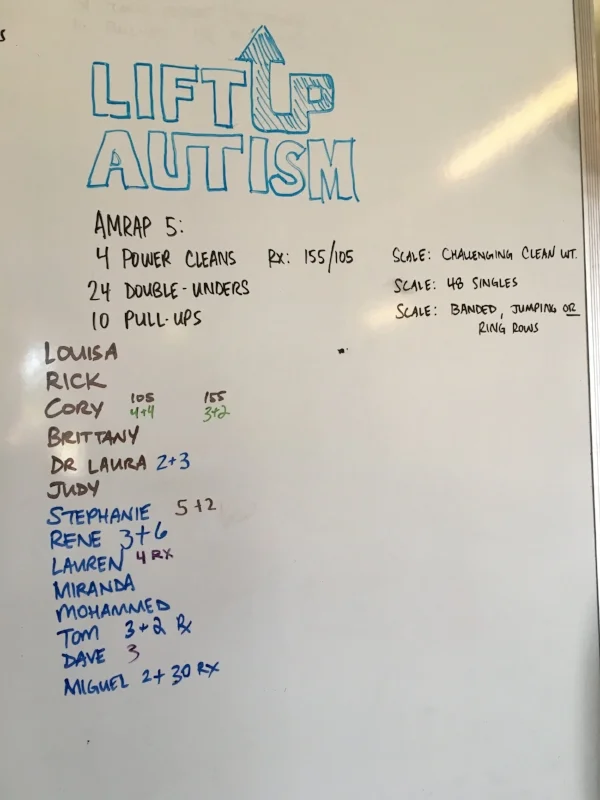 LIFT UP
AUTISM
AMRAP 5:
4 POWER CLEANS RX: 155/105 SCALE: CHALLENGING CLEAN WT.
24 DOUBLE-UNDERS SCALE: 48 SINGLES
10 PULL-UPS SCALE: BANDED, JUMPING OR
RING ROWS
LOUISA
RICK
105 155
CORY 4+4 3+2
BRITTANY
DR LAURA 2+3
JUDY
STEPHANIE 5+2
RENE 3+6
LAUREN 4 RX
MIRANDA
MOHAMMED
TOM 3+2 Rx
DAVE 3
MIGUEL 2+30 RX